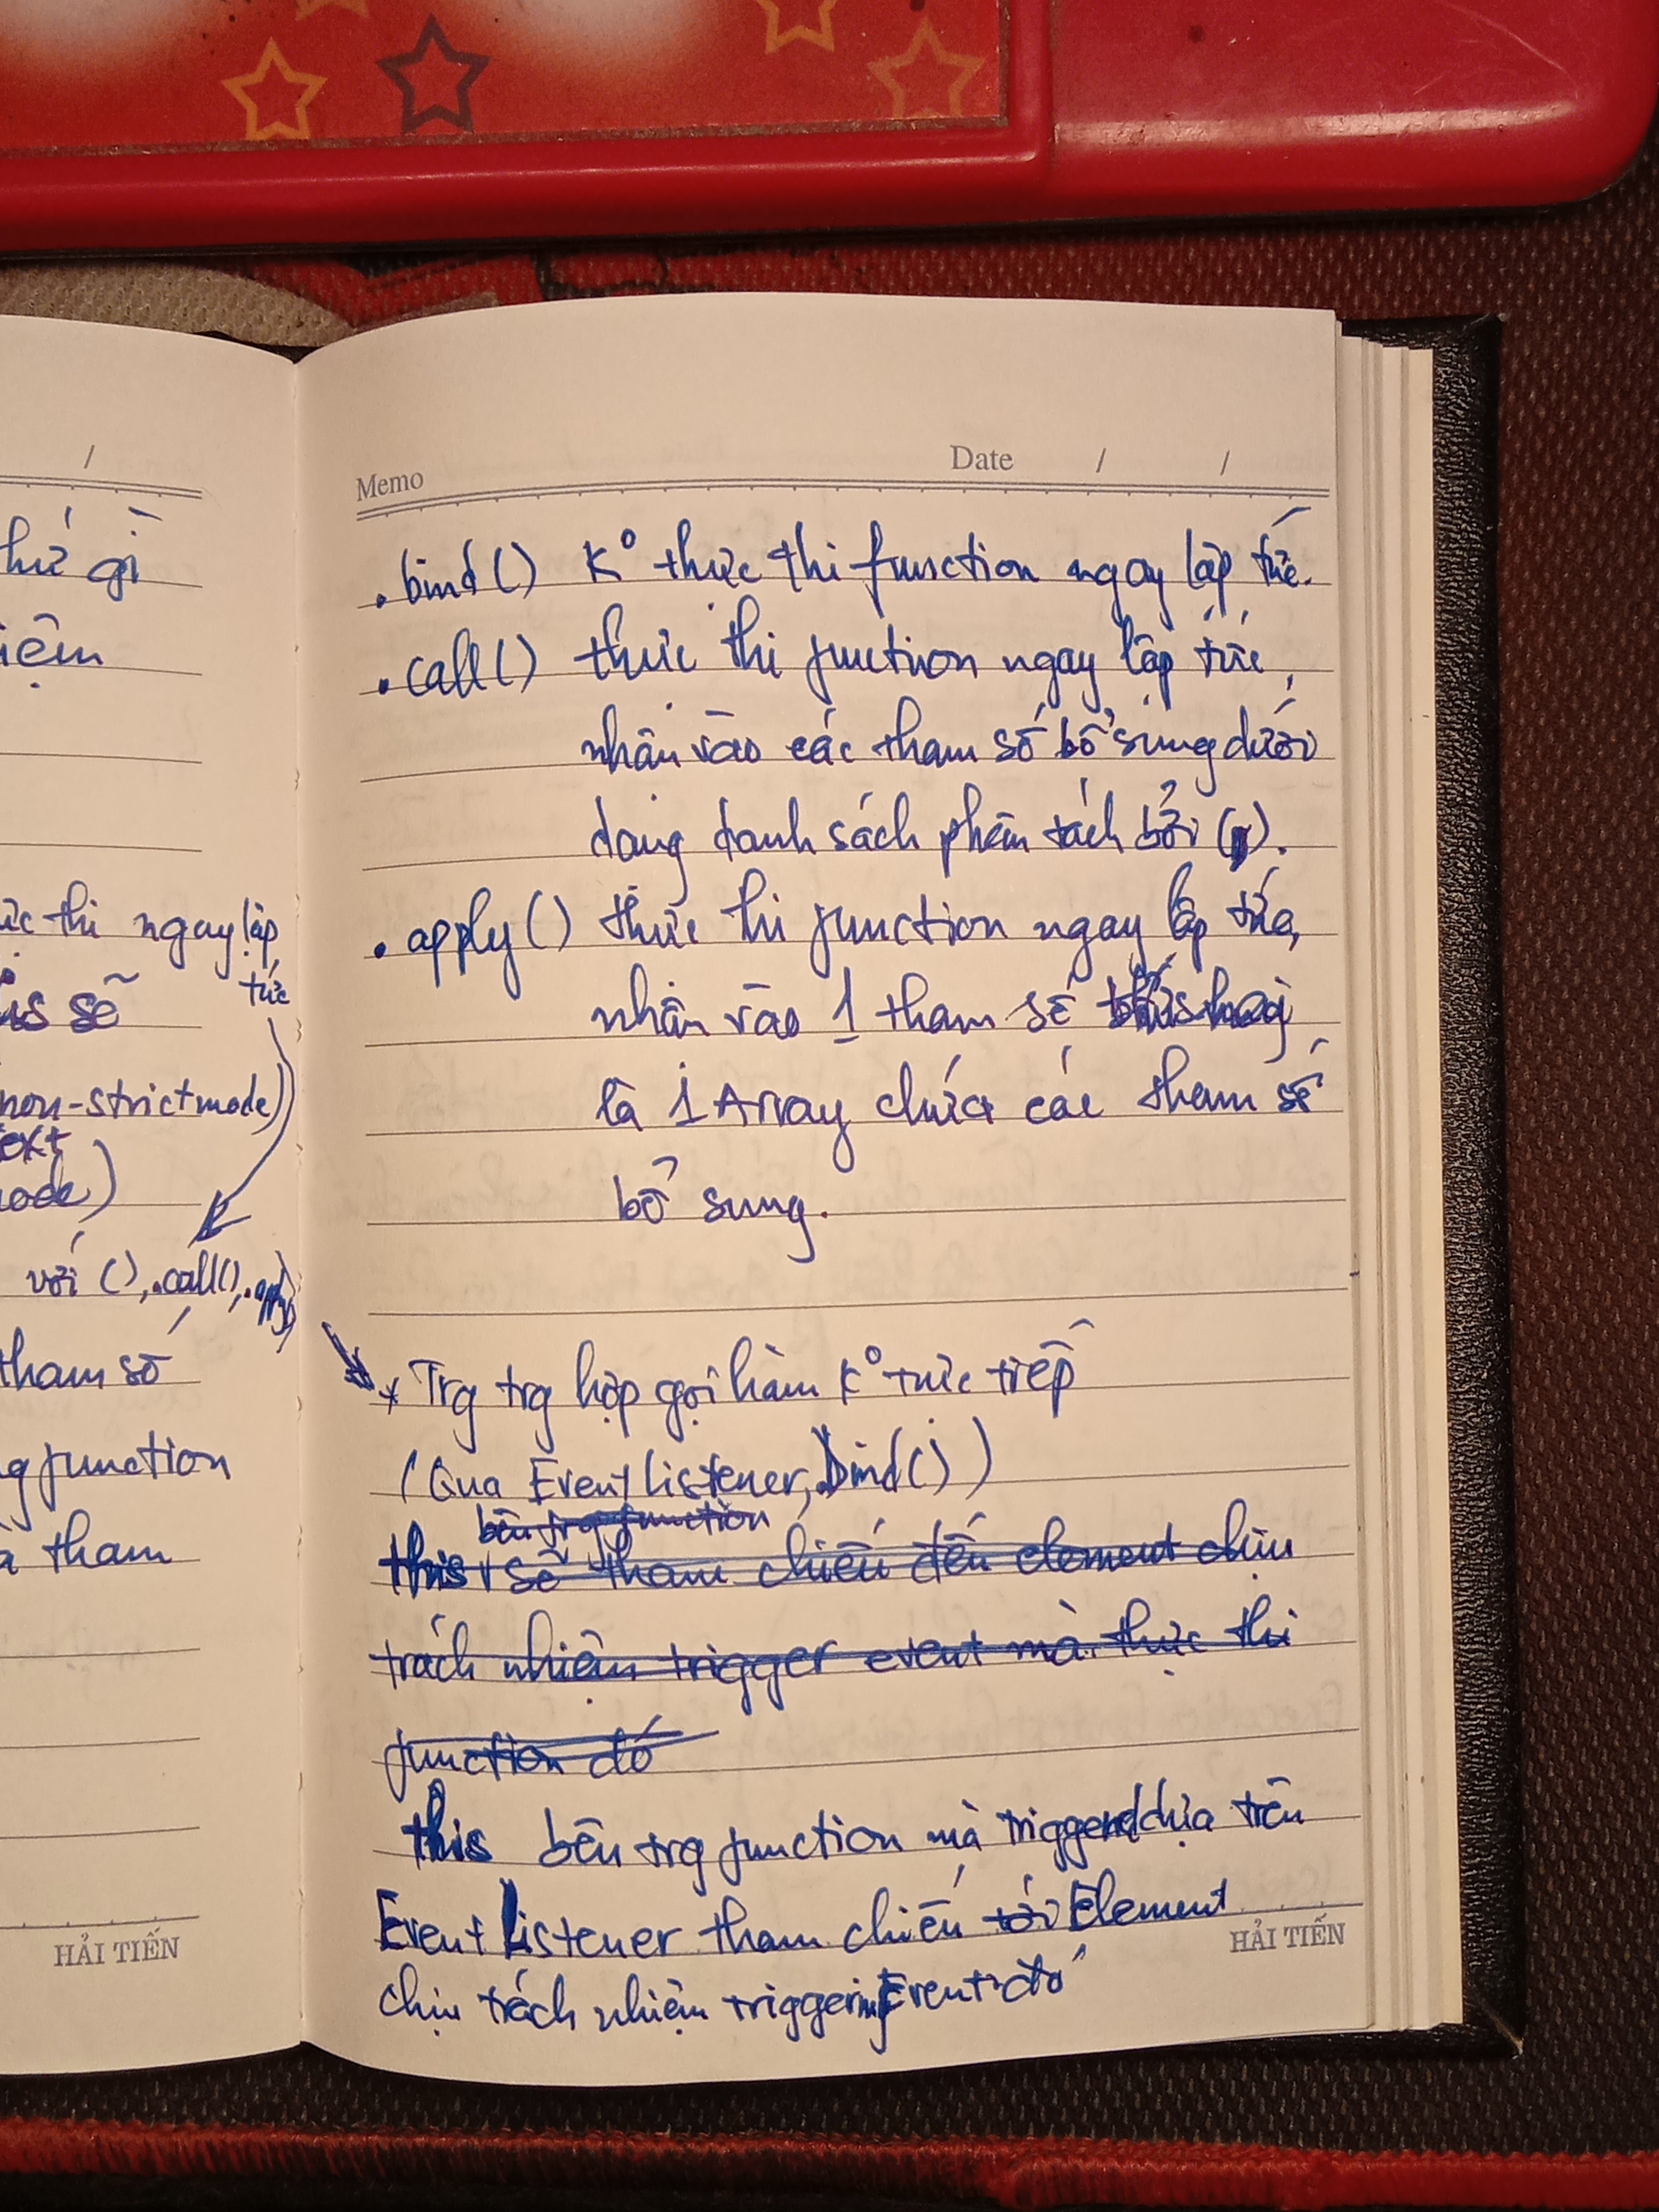 /
hứ gì
iệm
ực thi ngay lập
tức
sẽ
non-strictmode)
ext
ode)
với (), .call(), .apply()
tham số
g function
à tham
HẢI TIẾN
Memo
Date / /
.bind() Kº thực thi function ngay lập tức.
.call() thực thi function ngay lập tức,
nhận vào các tham số bổ sung dưới
dạng danh sách phân tách bởi (,).
.apply() thực thi function ngay lập tức,
nhận vào 1 tham số
là 1 Array chứa các tham số
bổ sung.
* Trg trg hợp gọi hàm Kº trực tiếp
(Qua Event Listener, .bind())
bên trg function
this sẽ tham chiếu đến element chịu
trách nhiệm trigger event mà thực thi
function đó
this bên trg function mà triggered dựa trên
Event Listener tham chiếu tới Element
chịu trách nhiệm triggering Event đó
HẢI TIẾN